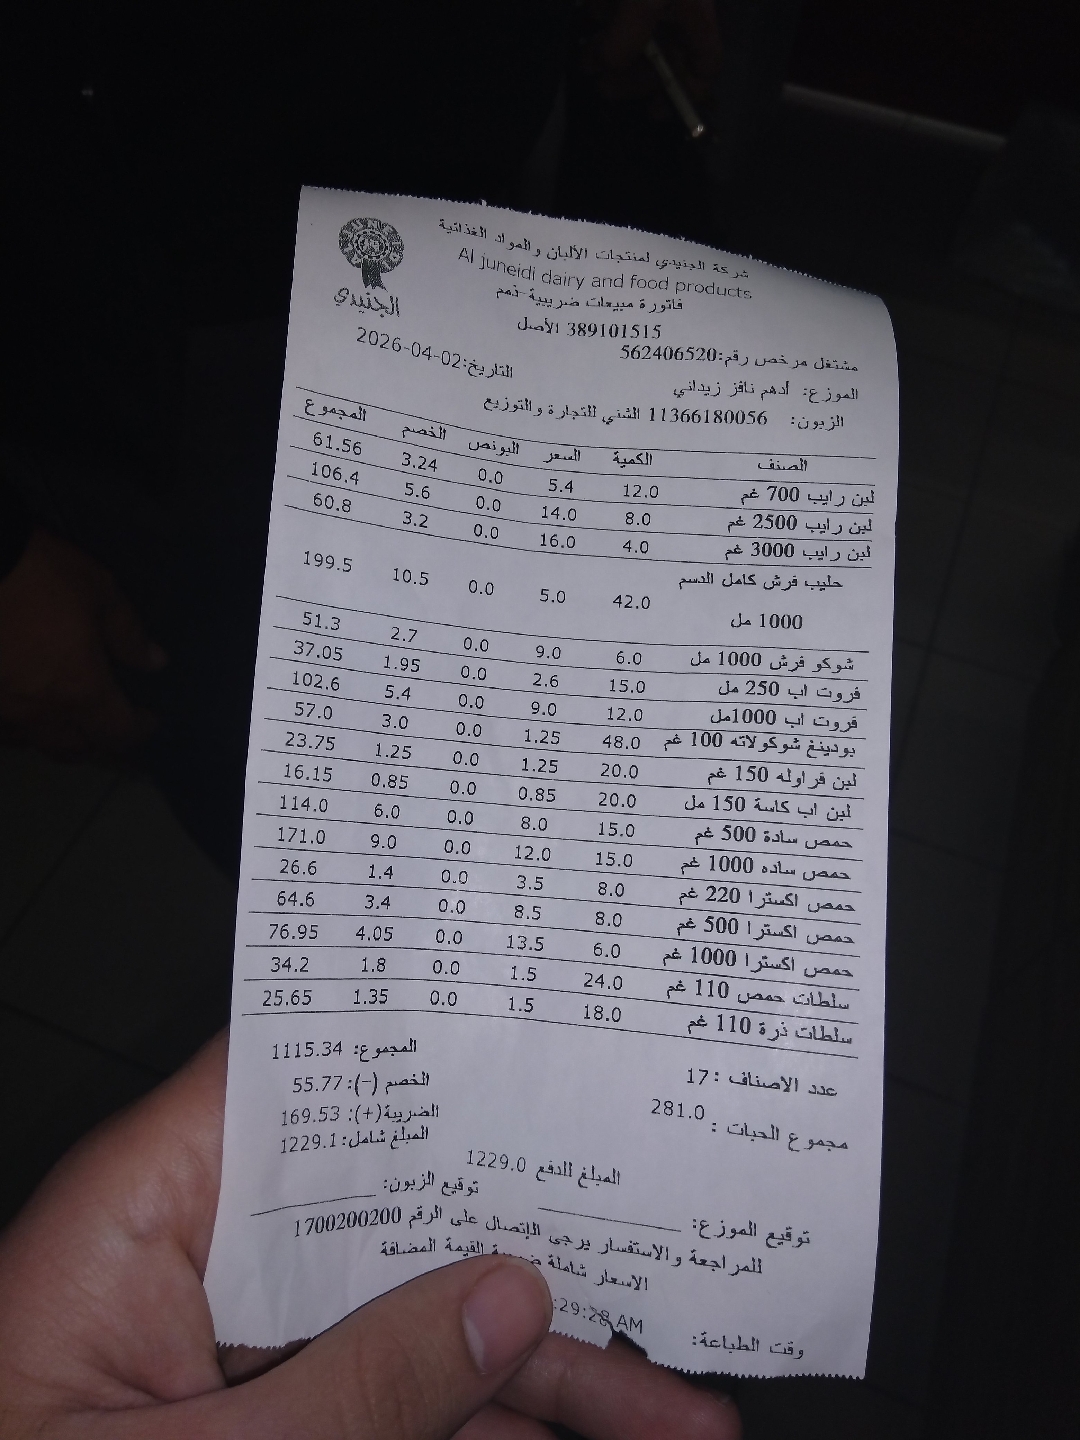 شركة الجنيدي لمنتجات الألبان والمواد الغذائية
Al juneidi dairy and food products
الجنيدي
فاتورة مبيعات ضريبية-ذمم
389101515 الأصل
مشتغل مرخص رقم:562406520
التاريخ:2026-04-02
الموزع: أدهم نافز زيداني
الزبون: 11366180056 الشني للتجارة والتوزيع
الصنف الكمية السعر البونص الخصم المجموع
لبن رايب 700 غم 12.0 5.4 0.0 3.24 61.56
لبن رايب 2500 غم 8.0 14.0 0.0 5.6 106.4
لبن رايب 3000 غم 4.0 16.0 0.0 3.2 60.8
حليب فرش كامل الدسم
1000 مل 42.0 5.0 0.0 10.5 199.5
شوكو فرش 1000 مل 6.0 9.0 0.0 2.7 51.3
فروت اب 250 مل 15.0 2.6 0.0 1.95 37.05
فروت اب 1000مل 12.0 9.0 0.0 5.4 102.6
بودينغ شوكولاته 100 غم 48.0 1.25 0.0 3.0 57.0
لبن فراوله 150 غم 20.0 1.25 0.0 1.25 23.75
لبن اب كاسة 150 مل 20.0 0.85 0.0 0.85 16.15
حمص سادة 500 غم 15.0 8.0 0.0 6.0 114.0
حمص ساده 1000 غم 15.0 12.0 0.0 9.0 171.0
حمص اكسترا 220 غم 8.0 3.5 0.0 1.4 26.6
حمص اكسترا 500 غم 8.0 8.5 0.0 3.4 64.6
حمص اكسترا 1000 غم 6.0 13.5 0.0 4.05 76.95
سلطات حمص 110 غم 24.0 1.5 0.0 1.8 34.2
سلطات ذرة 110 غم 18.0 1.5 0.0 1.35 25.65
المجموع: 1115.34
عدد الاصناف : 17
الخصم (-): 55.77
مجموع الحبات : 281.0
الضريبة(+): 169.53
المبلغ شامل: 1229.1
المبلغ للدفع 1229.0
توقيع الموزع: توقيع الزبون:
للمراجعة والاستفسار يرجى الإتصال على الرقم 1700200200
الاسعار شاملة ضريبة القيمة المضافة
وقت الطباعة: :29:28 AM